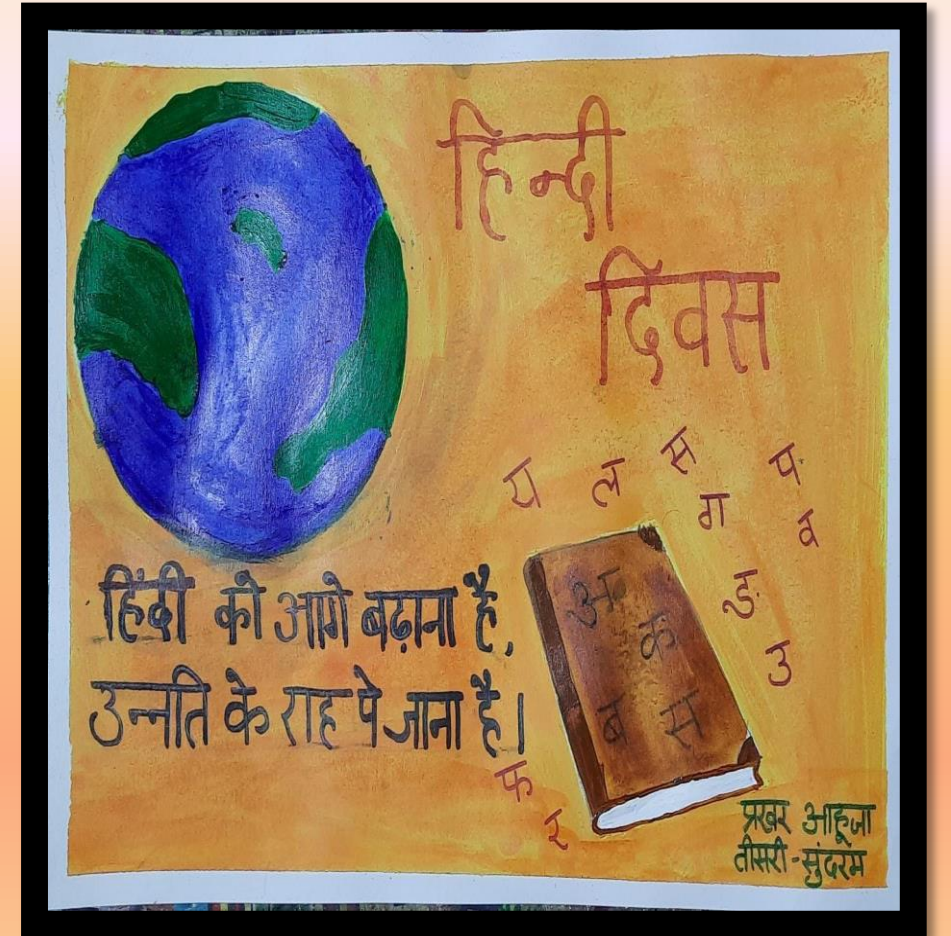 हिन्दी
दिवस
य ल स प
ग व
ङ
उ
अ
क
ब स
हिंदी को आगे बढ़ाना है,
उन्नति के राह पे जाना है।
फ
र
प्रखर आहूजा
तीसरी-सुंदरम